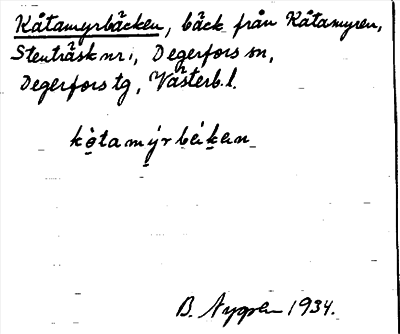 Kåtamyrbäcken, bäck från Kåtamyren,
Stenträsk nr 1, Degerfors sn,
Degerfors tg, Västerb. l.
kò̱tamý̱rbéḵen
B. Nygren 1934.